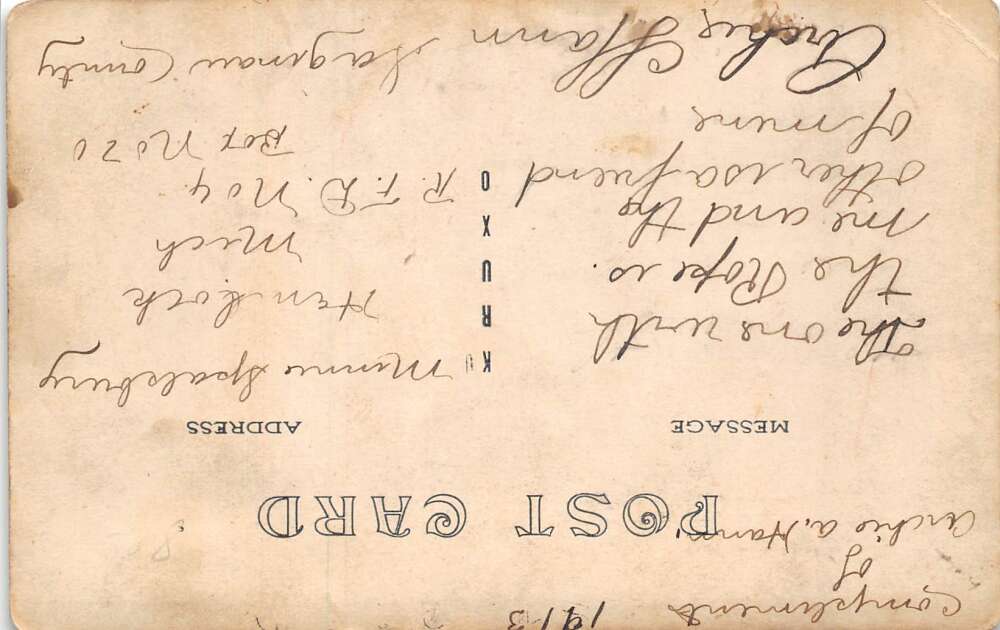 Compliments 1913
of
Archie A. Hann
POST CARD
MESSAGE
The one with
the Rope is.
me and the
other is a friend
of mine
Archie Hann
KRUXO
ADDRESS
Minnie Spalsbury
Hemlock
Mich
R.F.D. No 4.
Box No 20
Saginaw County